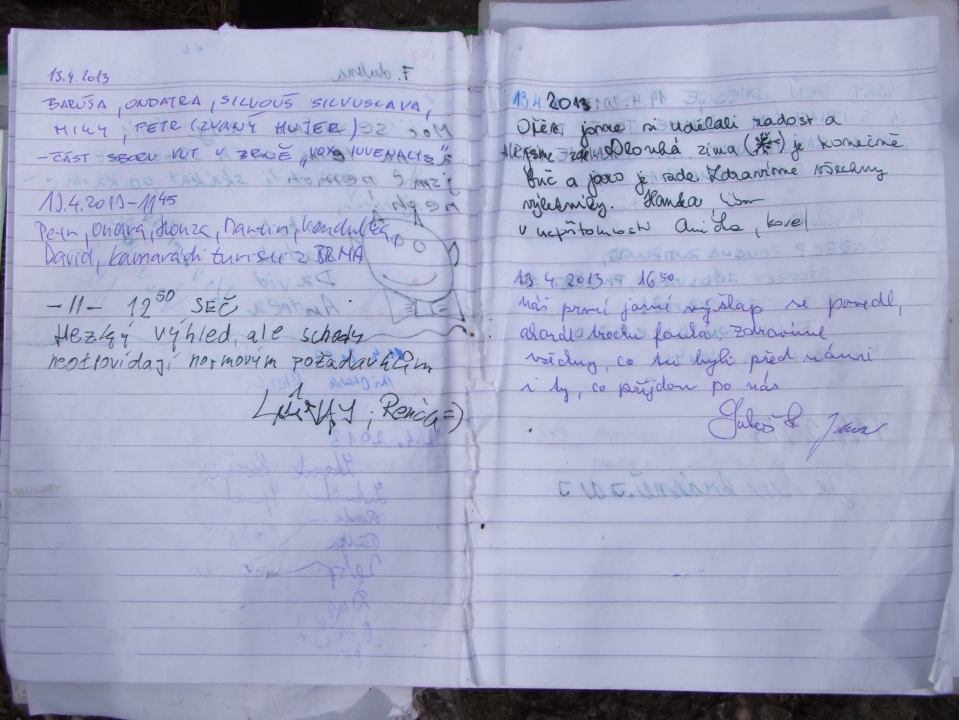 13.4.2013
BARUŠA, ONDATRA, SILVOUŠ SILVUSLAVA,
MIKY, PETR (ZVANÝ HUJER)
- ČÁST SBORU VUT V BRNĚ „VOX IUVENALIS"
13.4.2013 - 11 45
Petr, Ondra, Honza, Martin,
David, kamarádi turisti z BRNA
- 11 - 12 50 SEČ
Hezký výhled, ale schody
neodpovídají normovým požadavkům
Renča =)
13.4.2013
Opět jsme si udělali radost a
jsme zde. Dlouhá zima (❄) je konečně
fuč a jaro je tada. Zdravíme všechny
výletníky. Hanka Libor
v nepřítomnosti Anička, Karel
13. 4. 2013 16 50
Náš první jarní výšlap se povedl,
akorát trochu foukal. Zdravíme
všechny, co tu byli před námi
i ty, co přijdou po nás
Luboš Jana